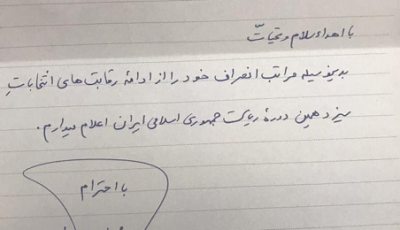 با اهداء سلام و تحیّات
بدینوسیله مراتب انصراف خود را از ادامهٔ رقابت های انتخاباتِ
سیزدهمین دورهٔ ریاست جمهوری اسلامی ایران اعلام میدارم.
با احترام